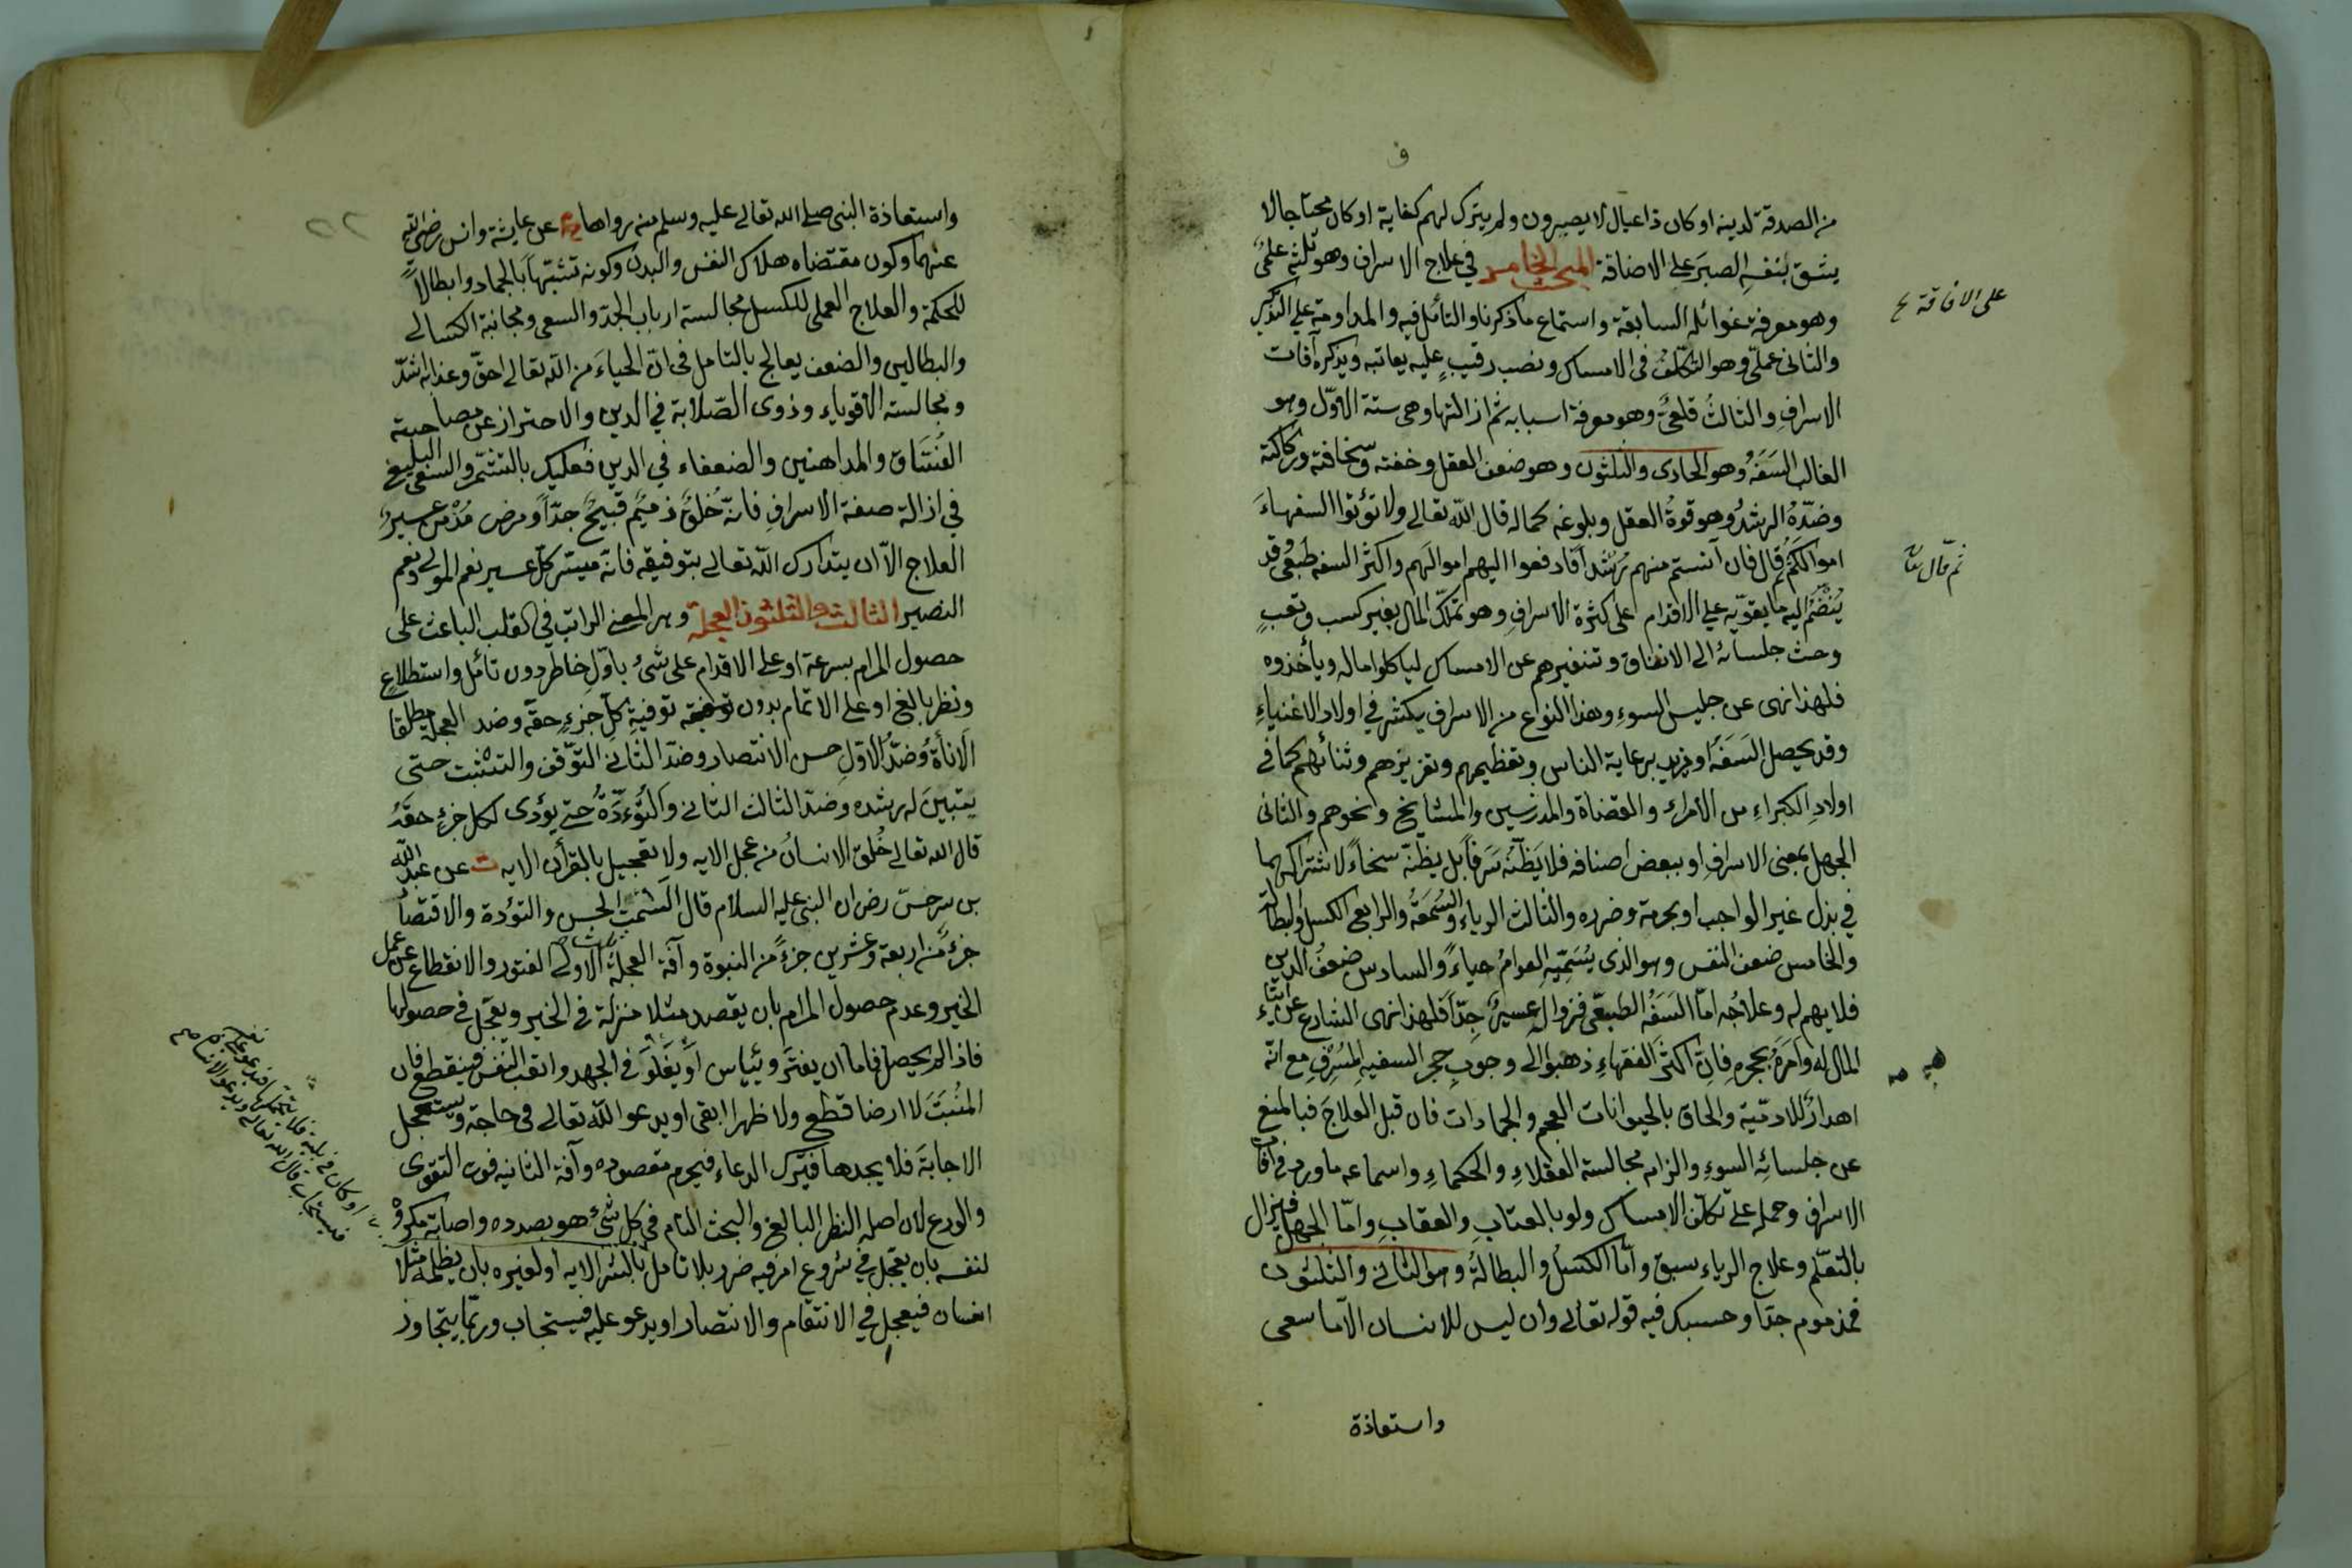 من الصدقة لدينه او كان ذا عيال لا يصبرون ولم يترك لهم كفاية او كان محتاجا لا
يشق لنفسه الصبر على الاضاقة المبحث الخامس في علاج الاسراف وهو ثلثة علمي
على الافاقة
وهو معرفة غوائله السابقة واستماع ما ذكرنا والتأمل فيه والمداومة على التذكير
والثاني عملي وهو التكلف في الامساك ونصب رقيب عليه يعاتبه ويذكره آفات
الاسراف والثالث قلعي وهو معرفة اسبابه ثم ازالتها وهي ستة الاول وهو
الغالب السفه وهو الحادي والثلثون وهو ضعف العقل وخفته وسخافته وركاكته
وضده الرشد وهو قوة العقل وبلوغه كماله قال الله تعالى ولا تؤتوا السفهاء
اموالكم ثم قال فان آنستم منهم رشدا فادفعوا اليهم اموالهم واكثر السفه طبعي وقد
ثم قال تعا
ينضم اليه ما يقويه على الاقدام على كثرة الاسراف وهو تملك المال بغير كسب وتعب
وحث جلسائه الى الانفاق وتنفيرهم عن الامساك لياكلوا ماله ويأخذوه
فلهذا نهى عن جليس السوء وهذا النواع من الاسراف يكثر في اولاد الاغنياء
وقد يحصل السفه او يزيد برعاية الناس وتعظيمهم وتعزيزهم وثنائهم كما في
اولاد الكبراء من الامراء والقضاة والمدرسين والمشايخ ونحوهم والثاني
الجهل بمعنى الاسراف او ببعض اصنافه فلا يظنه سرفا بل يظنه سخاء لاشتراكهما
في بذل غير الواجب او بحرمة وضرره والثالث الرياء والسمعة والرابع الكسل والبطالة
والخامس ضعف النفس وهو الذي يسميه العوام حياء والسادس ضعف الدين
فلا يهم له وعلاجه اما السفه الطبعي فزواله عسير جدا فلهذا نهى الشارع عن ايتاء
المال له وامر بحجره فان اكثر الفقهاء ذهبوا الى وجوب حجر السفيه المسرف مع انه
اهدار للادمية والحاق بالحيوانات العجم والجمادات فان قبل العلاج فبالمنع
عن جلسائه السوء والزام مجالسة العقلاء والحكماء واسماعه ما ورد في آفات
الاسراف وحمله على تكلف الامساك ولو بالعتاب والعقاب واما الجهل فيزال
بالتعلم وعلاج الرياء سبق واما الكسل والبطالة وهو الثاني والثلثون
فمذموم جدا وحسبك فيه قوله تعالى وان ليس للانسان الا ما سعى
واستعاذة
واستعاذة النبي صلى الله تعالى عليه وسلم منه رواها عن عايشة وانس رضي الله
عنهما وكون مقتضاه هلاك النفس والبدن وكونه تشبها بالجماد وابطالا
للحكمة والعلاج العملي للكسل مجالسة ارباب الجد والسعي ومجانبة الكسالى
والبطالين والضعف يعالج بالتامل في ان الحياء من الله تعالى احق وعذابه اشد
ومجالسة الاقوياء وذوى الصلابة في الدين والاحتراز عن مصاحبة
الفساق والمداهنين والضعفاء في الدين فعليك بالتشمر والسعي البليغ
في ازالة صفة الاسراف فانه خلق ذميم قبيح جدا ومرض مزمن عسير
العلاج الا ان يتدارك الله تعالى بتوفيقه فانه ميسر كل عسير نعم المولى ونعم
النصير الثالث والثلثون العجلة وهو المعنى الراتب في القلب الباعث على
حصول المرام بسرعة او على الاقدام على شئ باول خاطر دون تامل واستطلاع
ونظر بالغ او على الاتمام بدون توفية كل جزء حقه وضد العجلة مطلقا
الاناة وضد الاول حسن الانتصار وضد الثاني التوقف والتثبت حتى
يتبين له رشده وضد الثالث التأني والتؤدة حتى يؤدى لكل جزء حقه
قال الله تعالى خلق الانسان من عجل الايه ولا تعجل بالقرأن الايه ت عن عبد الله
بن سرجس رض ان النبي عليه السلام قال السمت الحسن والتؤدة والاقتصا
جزء من اربعة وعشرين جزء من النبوة وآفة العجلة الاولى الفتور والانقطاع عن عمل
الخير وعدم حصول المرام بان يقصد مثلا منزلة في الخير ويعجل في حصولها
فاذا لم يحصل فاما ان يفتر وييأس او يغلو في الجهد واتعب النفس فينقطع فان
المنبت لا ارضا قطع ولا ظهرا ابقى او يدعو الله تعالى في حاجة ويستعجل
الاجابة فلا يجدها فيترك الدعاء فيحرم مقصوده وآفة الثانية فوت التقوى
والورع لان اصله النظر البالغ والبحث التام في كل شئ هو بصدده واصابة مكروه
لنفسه بان يعجل في شروع امر فيه ضرر بلا تامل بالشر الايه او لغيره بان يظلمه مثلا
انسان فيعجل في الانتقام والانتصار او يدعو عليه فيستجاب وربما يتجاوز